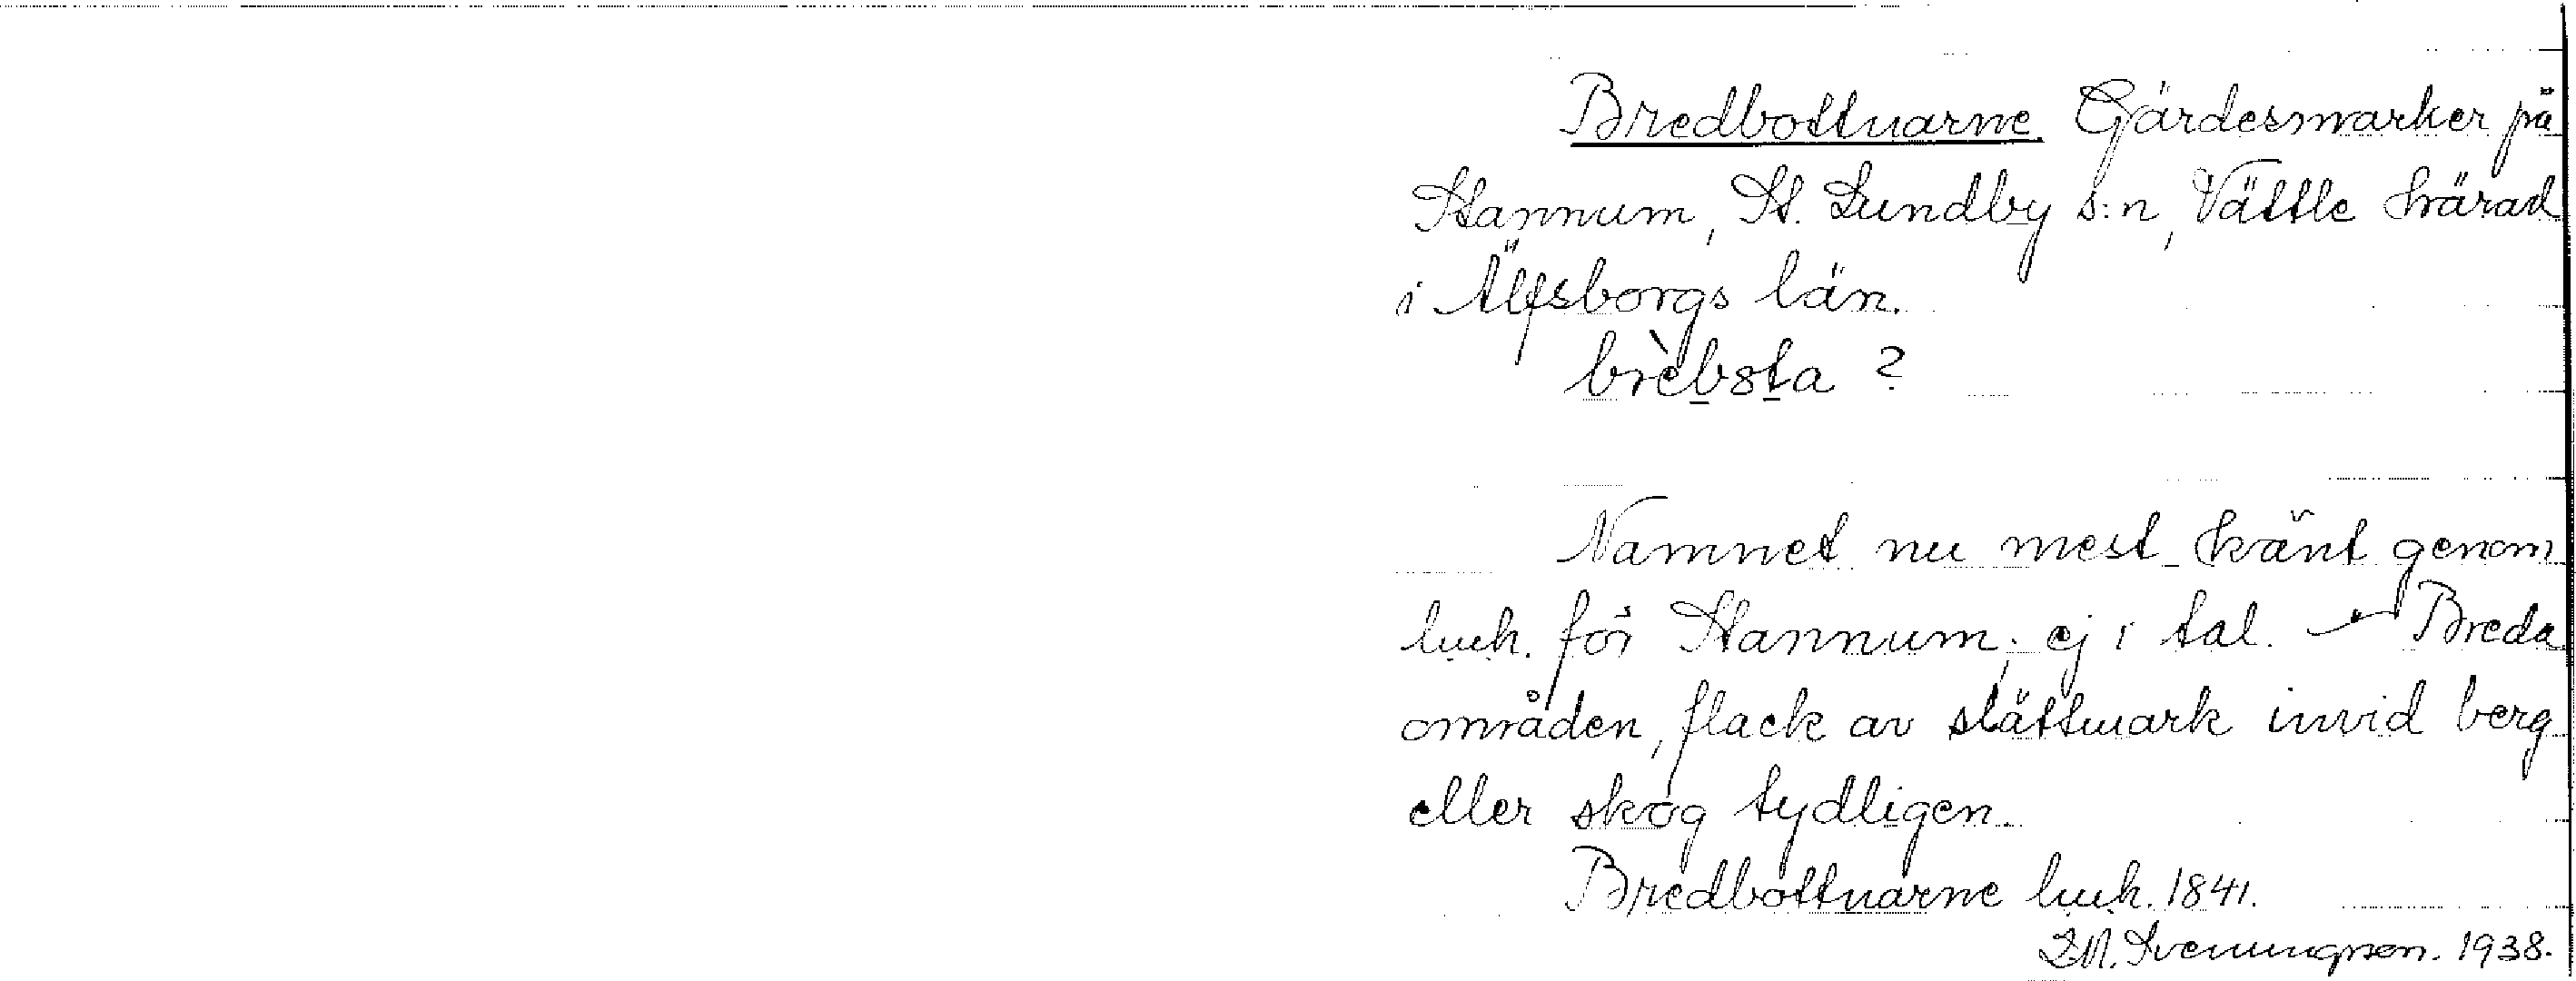 Bredbottnarne. Gärdesmarker på
Stannum, St. Lundby s:n, Vättle härad
i Älfsborgs län.
brèbsta ?
Namnet nu mest känt genom
lmh. för Stannum; ej i tal. — Breda
områden, flack av slättmark invid berg
eller skog tydligen.
Bredbottnarne lmh. 1841.
Svenungson. 1938.